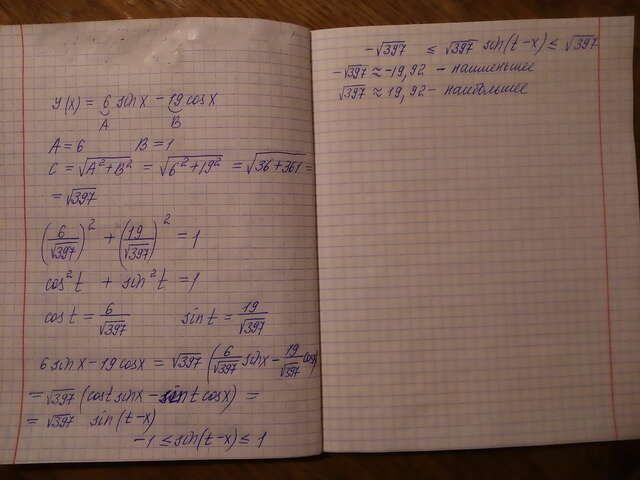 y(x) = 6 sinx - 19 cosx
A B
A = 6 B = 1
C = √A²+B² = √6²+19² = √36+361 =
= √397
(6/√397)² + (19/√397)² = 1
cos²t + sin²t = 1
cost = 6/√397 sint = 19/√397
6 sinx - 19 cosx = √397 (6/√397 sinx - 19/√397 cosx)
= √397 (cost sinx - sint cosx) =
= √397 sin(t-x)
-1 ≤ sin(t-x) ≤ 1
-√397 ≤ √397 sin(t-x) ≤ √397
-√397 ≈ -19,92 - наименьшее
√397 ≈ 19,92 - наибольшее